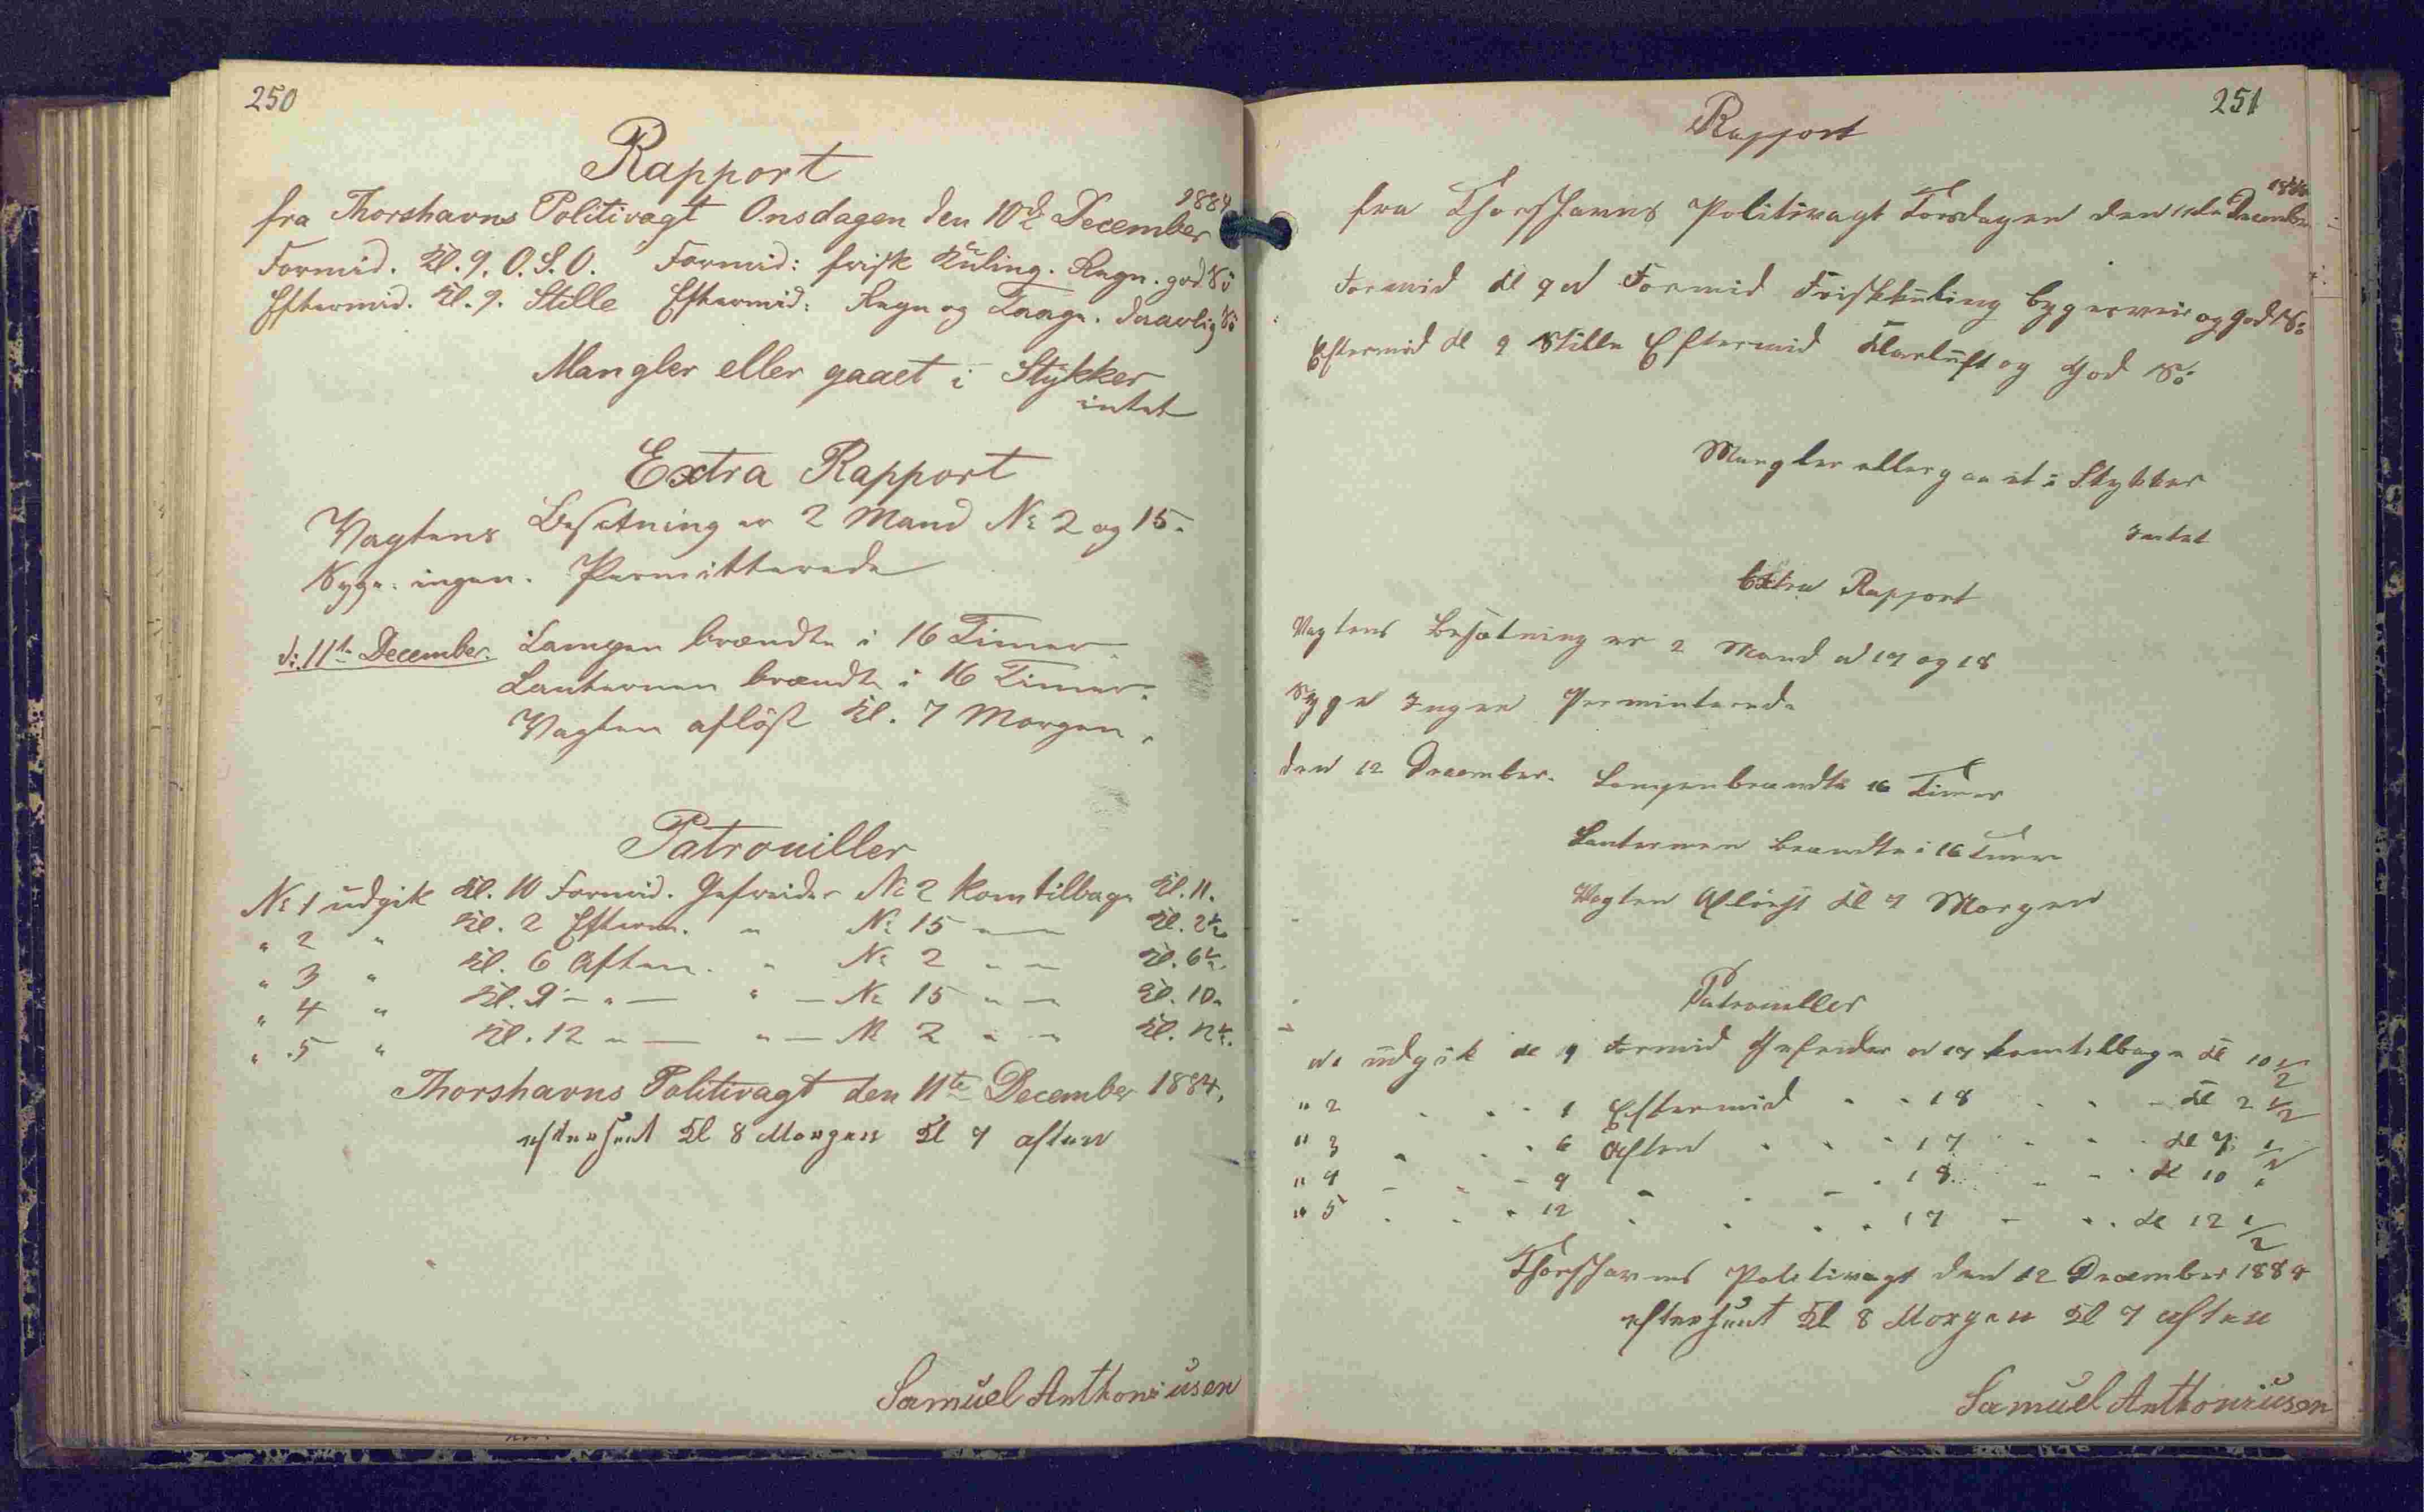 250
Rapport
fra Thorshavns Politivagt Onsdagen den 10de December 1884
Formid. Kl. 9. O.S.O. Formid: frisk Kuling. Regn. god Sö
Eftermid. Kl. 9. Stille Eftermid: Regn og Taage. daarlig Sö
Mangler eller gaaet i Stykker
intet
Extra Rapport
Vagtens Besætning er 2 Mand No 2 og 15.
Syge. ingen. Permitterede
d: 11te December. Lampen brændte i 16 Timer.
Lanternen brændte i 16 Timer.
Vagten aflöst Kl. 7 Morgen.
Patrouiller
No 1 udgik Kl. 10 Formid. Gefreider No 2 kom tilbage Kl. 11.
" 2 " Kl. 2 Efterm. " No 15 " — Kl. 2½
" 3 " Kl. 6 Aften. " No 2 " — Kl. 6½
" 4 " Kl. 9 — " — " — No 15 " — Kl. 10.
" 5 " Kl. 12 " — " — No 2 " — Kl. 12½.
Thorshavns Politivagt den 11te December 1884.
efterseet Kl 8 Morgen Kl 7 aften
Samuel Anthoniusen
251
Rapport
fra Thorshavns Politivagt Torsdagen den 11de December 1884
Formid Kl 9 Formid Friskkuling bygerveir og god Sö
Eftermid Kl 9 Stille Eftermid Klarluft og God Sö
Mangler eller gaaet i Stykker
Intet
Extra Rapport
Vagtens Besætning er 2 Mand No 17 og 18
Syge Ingen Perminterede
den 12 December. Lampen brændte 16 Timer
Lanternen Brændte i 16 Timer
Vagten Aflöst Kl 7 Morgen
Patrouller
No 1 udgik Kl 9 Formid Gefreider No 17 kom tilbage Kl 10 1/2
" 2 " " 1 Eftermid " " 18 " " Kl 2 1/2
" 3 " " 6 Aften " " 17 " " Kl 7 1/2
" 4 " " 9 " " 18 " " Kl 10 "
" 5 " " 12 " " 17 " " Kl 12 1/2
Thorshavns Politivagt den 12 December 1884
efterseet Kl 8 Morgen Kl 7 aften
Samuel Anthoniusen